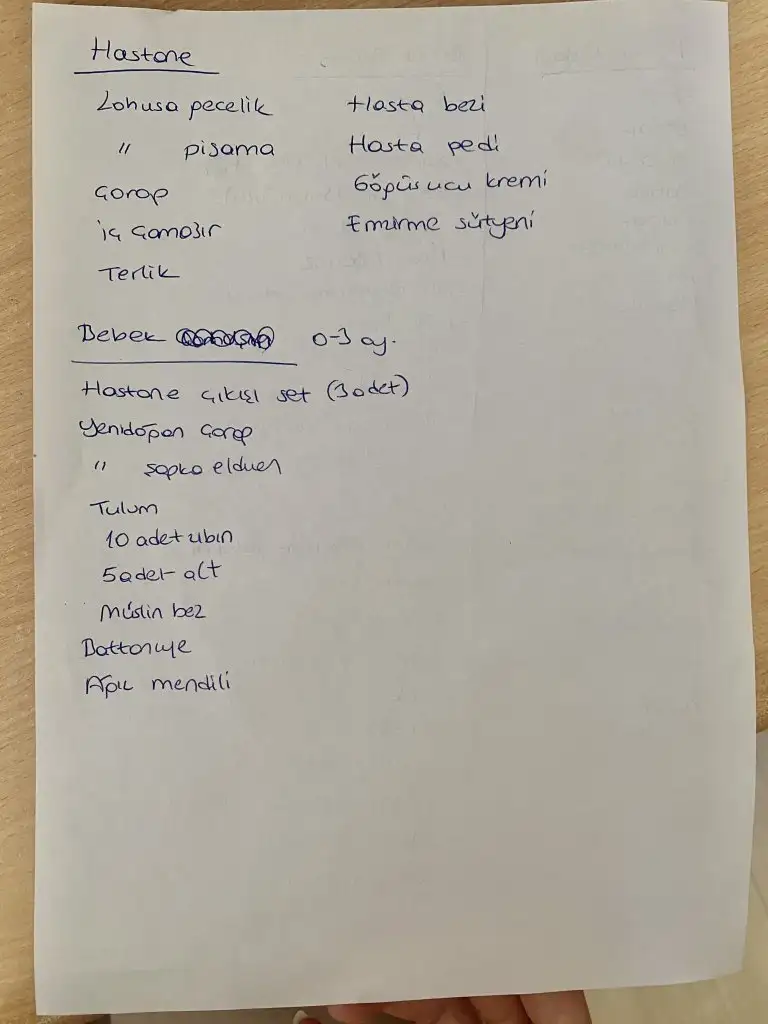 Hastane
Lohusa gecelik
" pijama
Çorap
İç çamaşır
Terlik
Hasta bezi
Hasta pedi
Göğüs ucu kremi
Emzirme sütyeni
Bebek 0-3 ay.
Hastane çıkışı set (3 adet)
Yenidoğan Çorap
" şapka eldiven
Tulum
10 adet zıbın
5 adet alt
Müslin bez
Battaniye
Ağız mendili